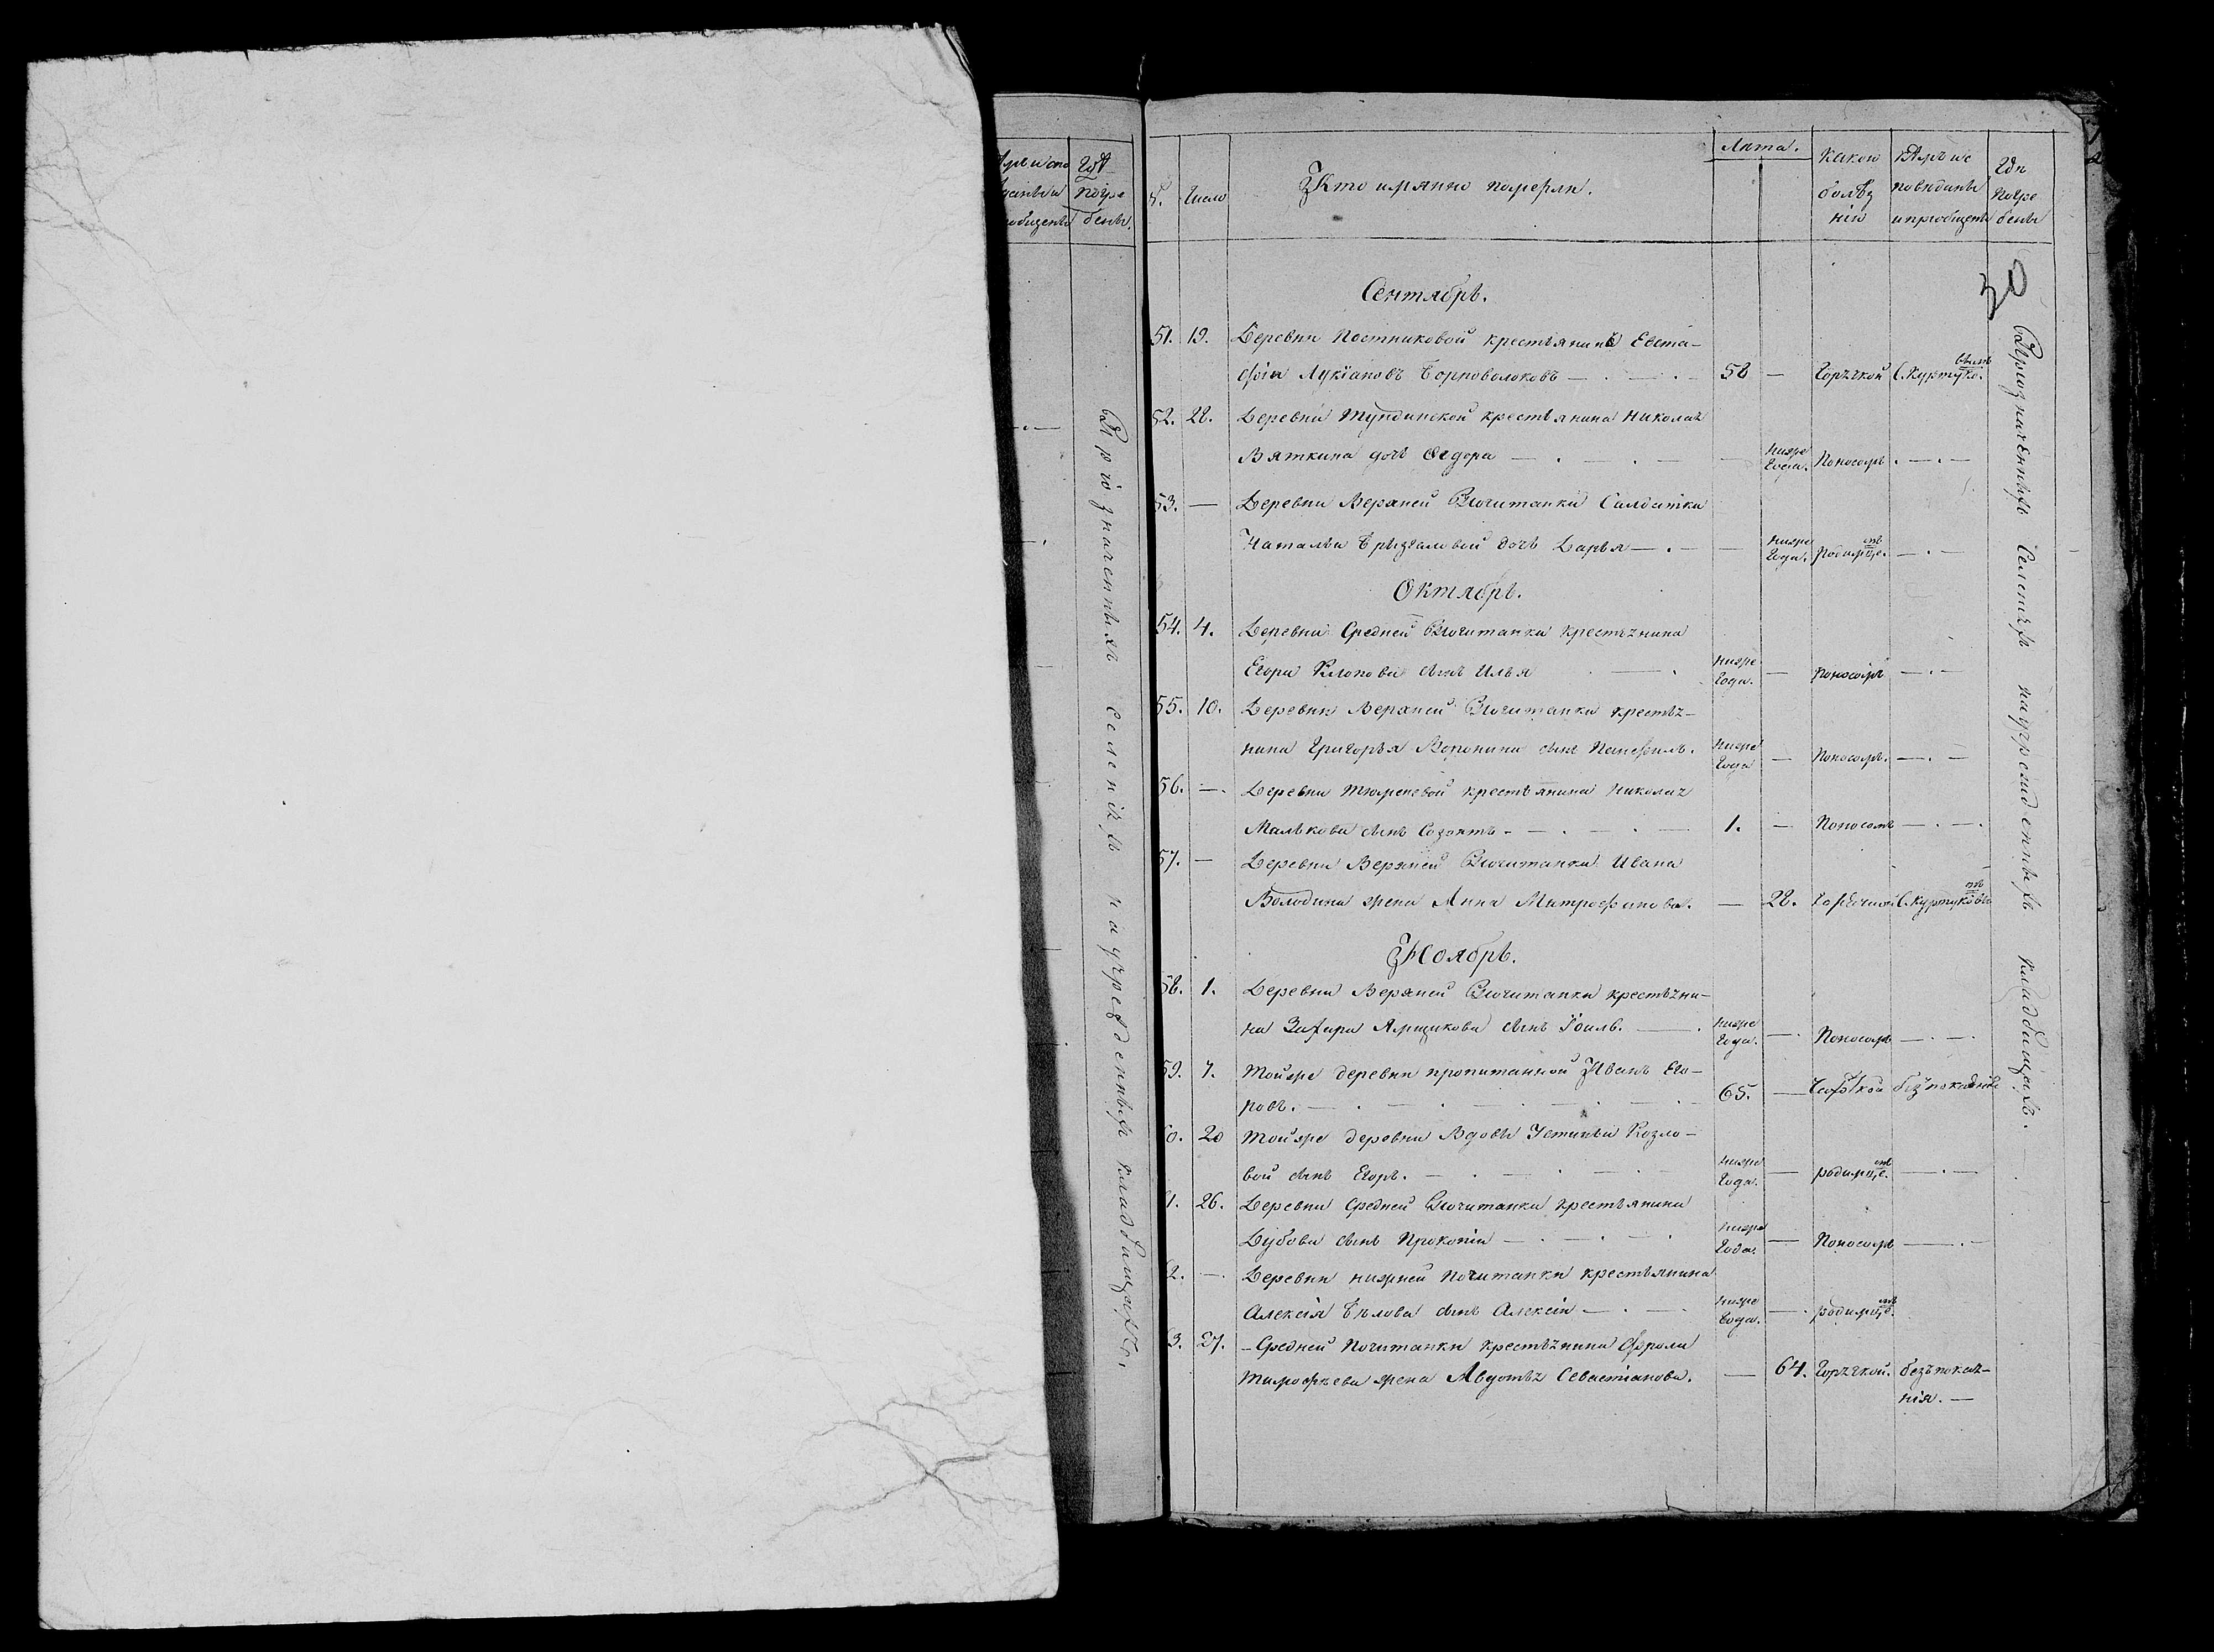 №.
Число
Кто имянно померли.
Лѣта.
Какою
болѣз
нію
Кѣмъ ис
повѣданы
и пріобщены
Гдѣ
Погре
бены
30
Сентябрь.
51. 19. Деревни Постниковой крестьянинъ Евста-
фій Лукіановъ Черноволоковъ — 58 — Горячкой С. Куртуко.
52. 28. Деревни Тундинской крестьянина Николая
Вяткина дочь Ѳедора — — ниже года. Поносомъ. —
53. — Деревни Верхней Почитанки Салдатки
Натальи дочь Дарья — — ниже года. родимце. —
Октябрь.
54. 4. Деревни Средней Почитанки крестьянина
Егора Клопова сынъ Илья — ниже года. — Поносомъ —
55. 10. Деревни Верхней Почитанки крестья-
нина Григорья Воронина сынъ Панфилъ. ниже года — Поносомъ. —
56. — Деревни Тюменевой крестьянина Николая
Малькова сынъ Созонтъ — 1. — Поносомъ —
57. — Деревни Верхней Почитанки Ивана
Володина жена Анна Митрофанова. — 28. Горячкой С. Куртуковъ
Ноябрь.
58. 1. Деревни Верхней Почитанки крестьяни-
на Захара Ямщикова сынъ Іоиль. — ниже года. — Поносомъ —
59. 7. Той же деревни пропитанной Иванъ Его-
ровъ. — 65. —
60. 20 Той же деревни Вдовы Устиньи Козло-
вой сынъ Егоръ. — ниже года. — родимце. —
61. 26. Деревни Средней Почитанки крестьянина
Дубова сынъ Прокопій — ниже года. — Поносомъ —
62. — Деревни нижней Почитанки крестьянина
Алексія Бѣлова сынъ Алексій — ниже года. — родимце.
63. 27. — Средней Почитанки крестьянина Фрола
Тимофеева жена Авдотья Севастіанова. — 64. Горячкой. безъ покая-
нія. —
въ Приозначенныхъ Селеніяхъ на учрежденныхъ кладбищахъ.